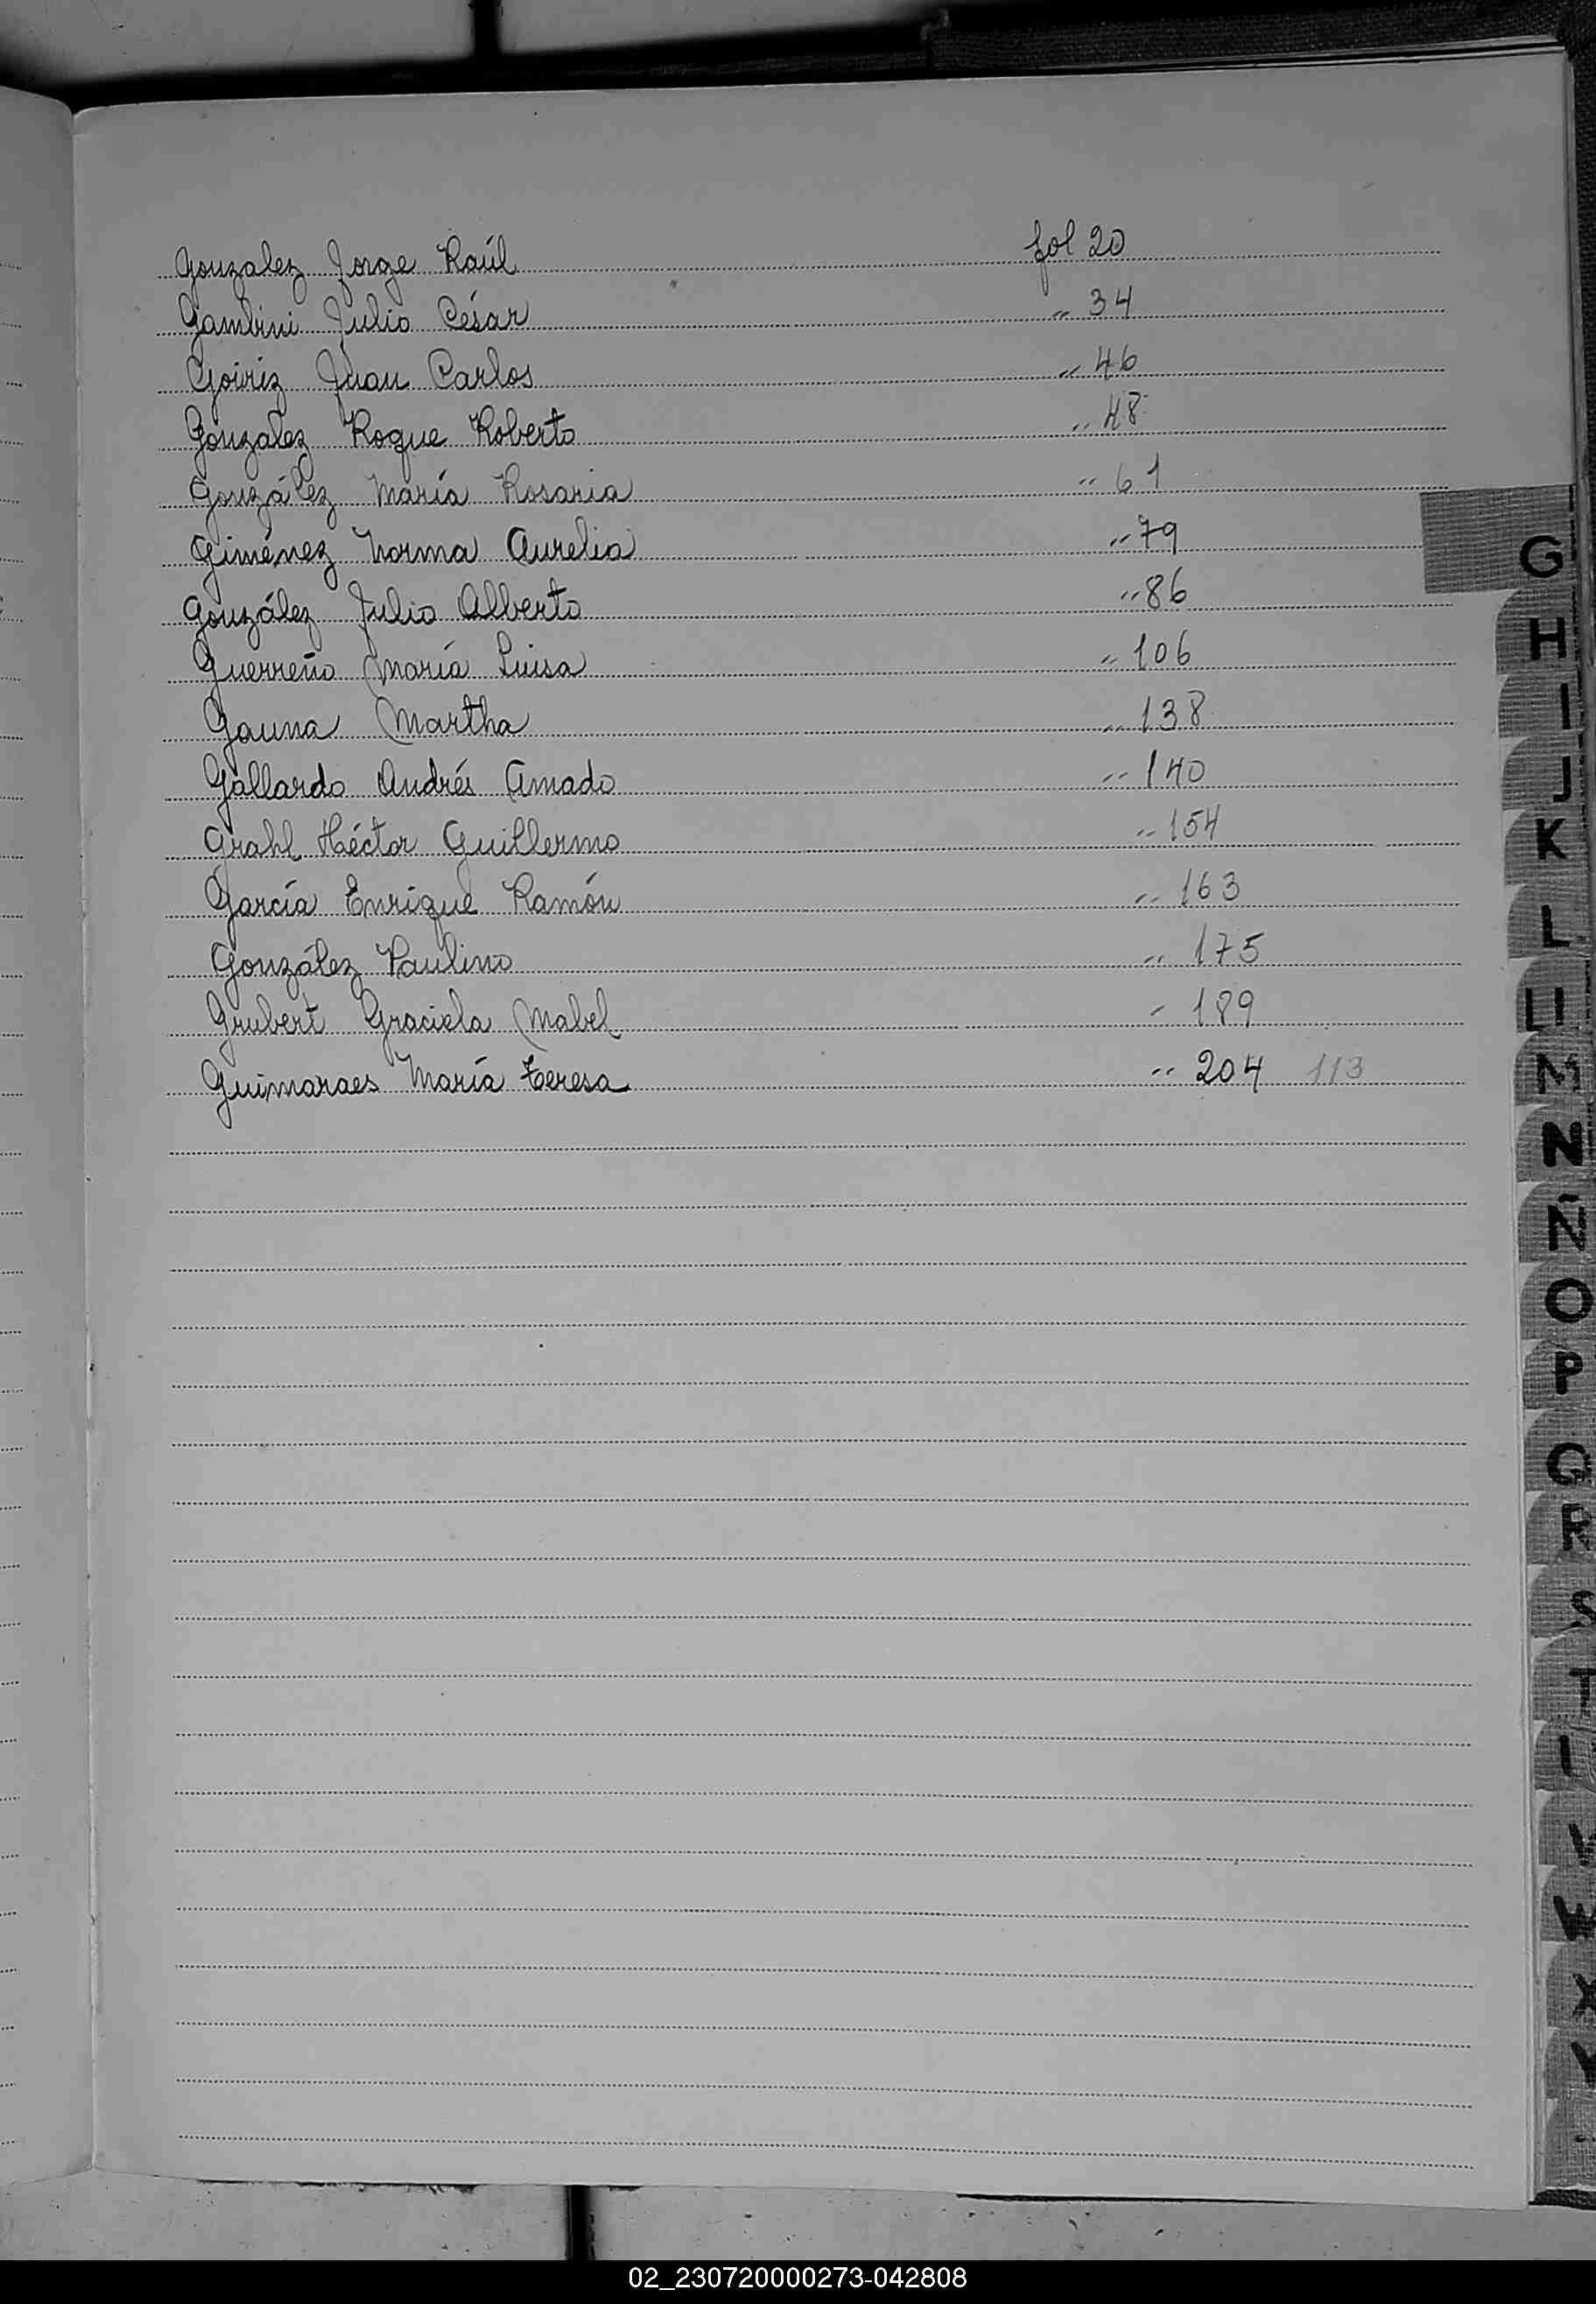 Gonzalez Jorge Raúl fol 20
Gambini Julio César " 34
Goiriz Juan Carlos " 46
Gonzalez Roque Roberto " 48
González María Rosaria " 61
Giménez Norma Aurelia " 79
González Julio Alberto " 86
Guerreño María Luisa " 106
Gauna Martha " 138
Gallardo Andrés Amado " 140
Grahl Héctor Guillermo " 154
García Enrique Ramón " 163
González Paulino " 175
Grubert Graciela Mabel " 189
Guimaraes María Teresa " 204 113
G
H
I
J
K
L
LL
M
N
Ñ
O
P
Q
R
S
T
V
W
X
02_230720000273-042808